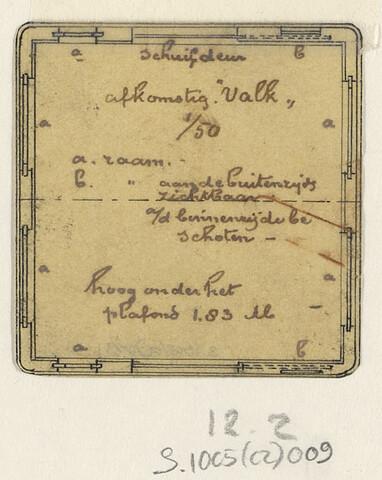 a schuifdeur b
afkomstig "Valk"
1/50
a a
a. raam.
b. " aan de buitenzijds
zichtbaar
a/d binnenzijde be
schoten -
a a
hoog onder het
plafond 1.83 M -
a b
12.2
S.1005(02)009